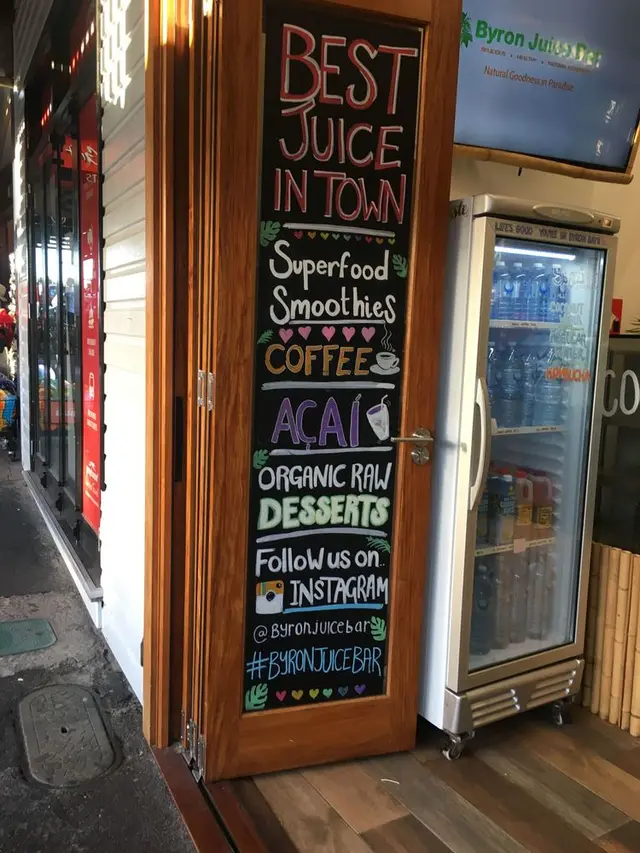 BEST
JUICE
IN TOWN
Superfood
Smoothies
COFFEE
AÇAÍ
ORGANIC RAW
DESSERTS
Follow us on..
INSTAGRAM
@Byronjuicebar
#BYRONJUICEBAR
Byron Juice Bar
Natural Goodness in Paradise
LIFE'S GOOD YOU'RE IN BYRON BAY!
KOMBUCHA
CO